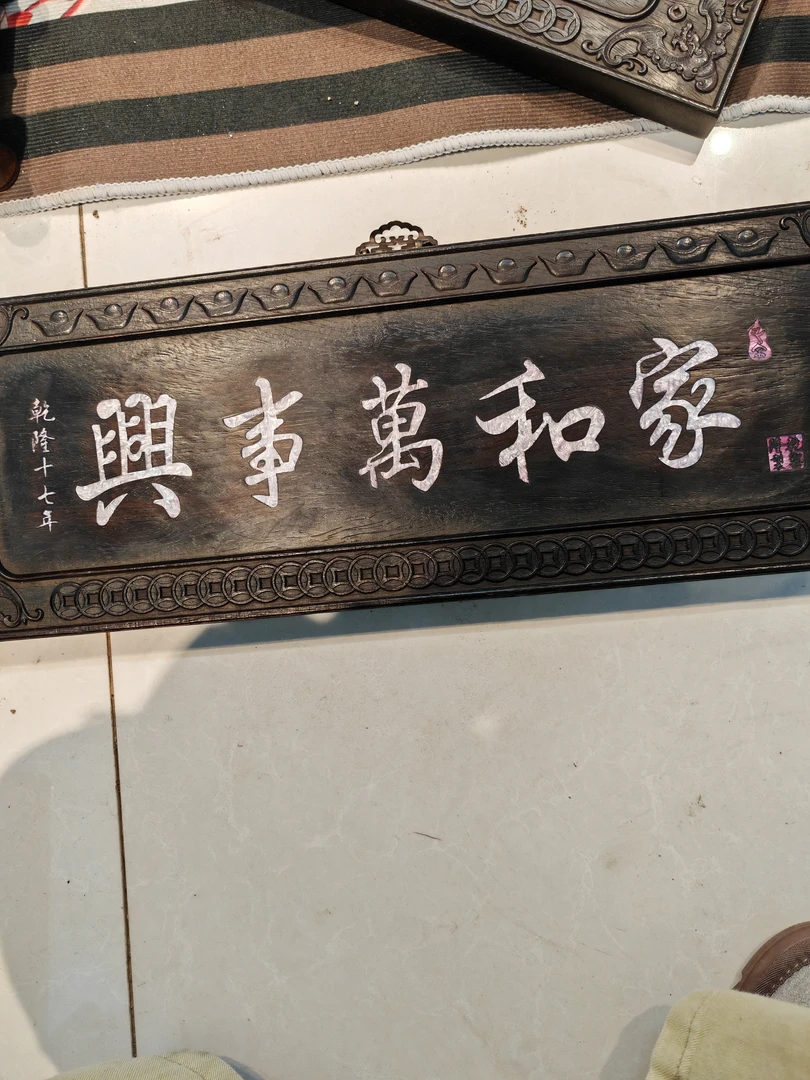 家和萬事興
乾隆十七年